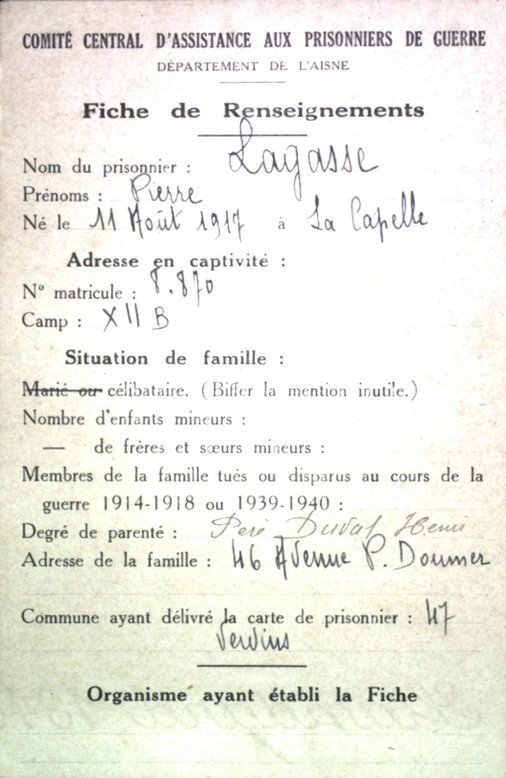 COMITÉ CENTRAL D'ASSISTANCE AUX PRISONNIERS DE GUERRE
DÉPARTEMENT DE L'AISNE
Fiche de Renseignements
Nom du prisonnier : Lagasse
Prénoms : Pierre
Né le 11 Août 1917 à La Capelle
Adresse en captivité :
N° matricule : 8.870
Camp : XII B
Situation de famille :
Marié ou célibataire. (Biffer la mention inutile.)
Nombre d'enfants mineurs :
— de frères et sœurs mineurs :
Membres de la famille tués ou disparus au cours de la
guerre 1914-1918 ou 1939-1940 :
Degré de parenté : Père Duval Henri
Adresse de la famille : 46 Avenue P. Doumer
Commune ayant délivré la carte de prisonnier : 47
Vervins
Organisme ayant établi la Fiche